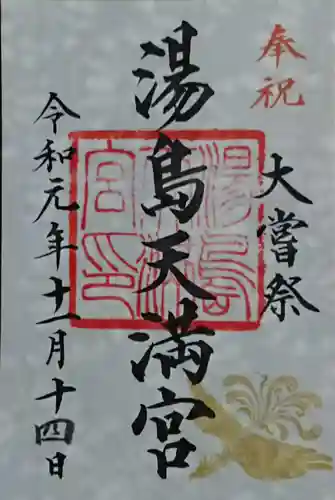 奉祝
大嘗祭
湯島天満宮
湯島天満宮印
令和元年十一月十四日